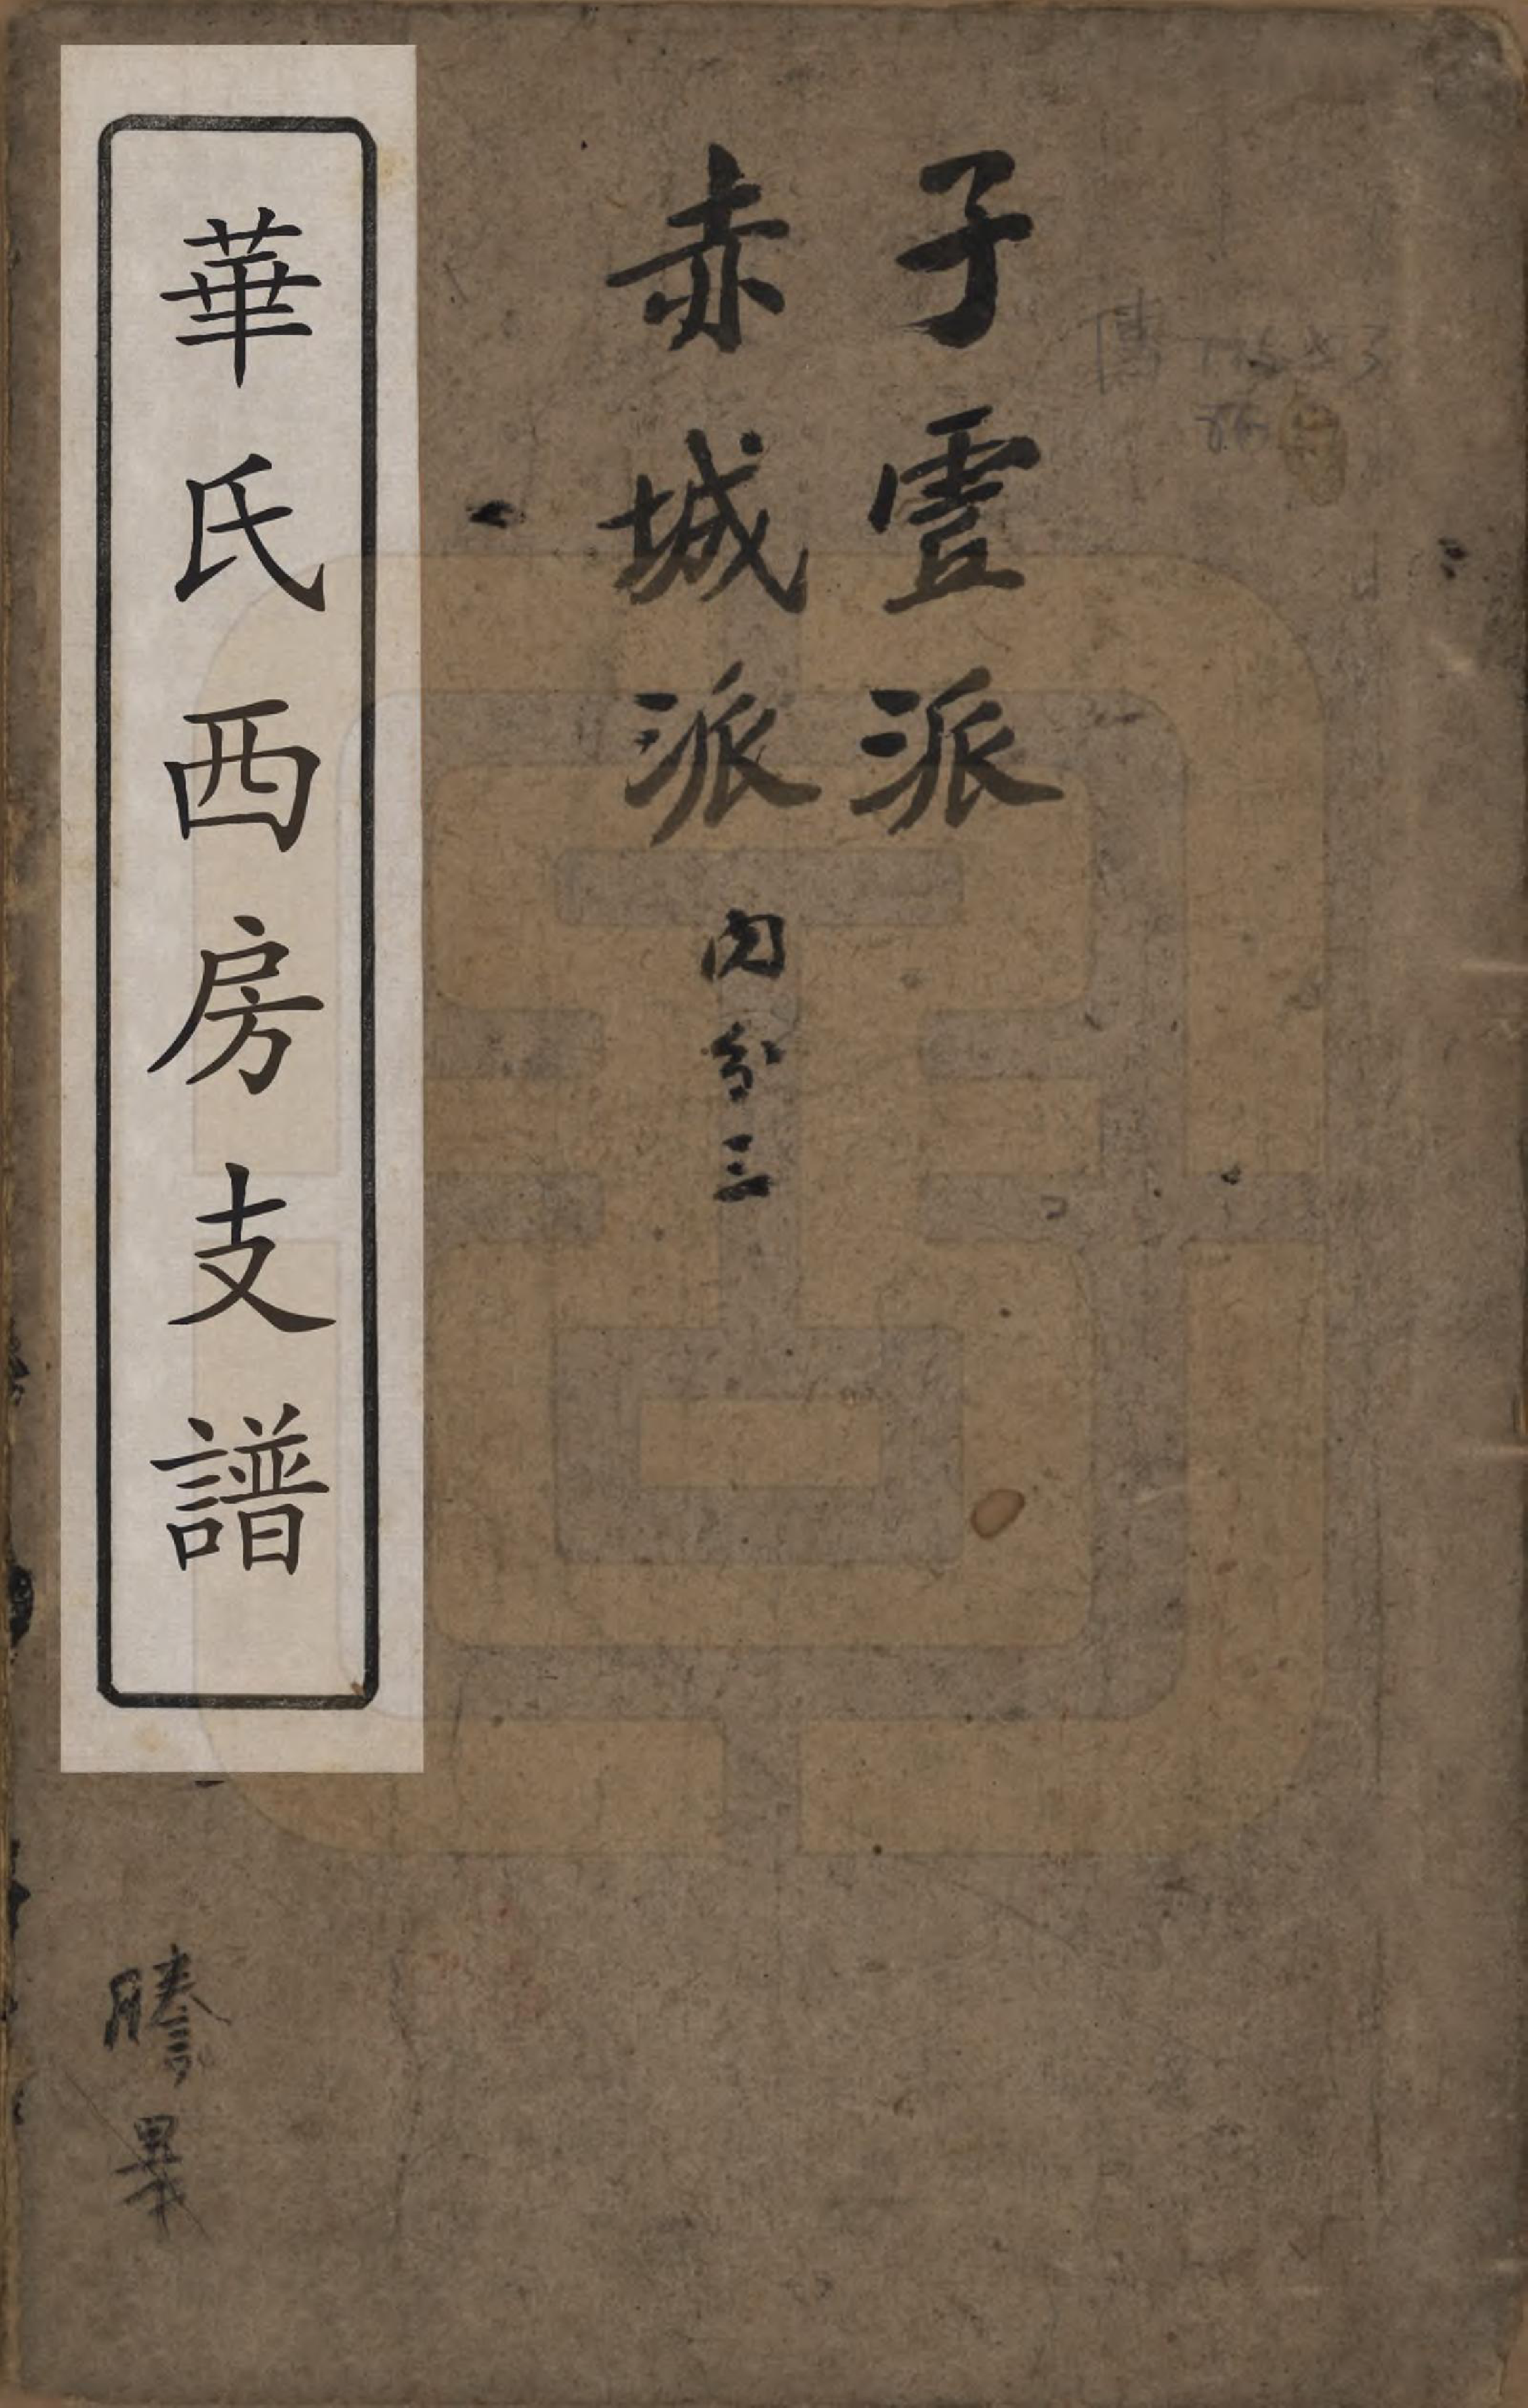 子霊派
赤城派 内分三
華氏西房支譜
謄畢